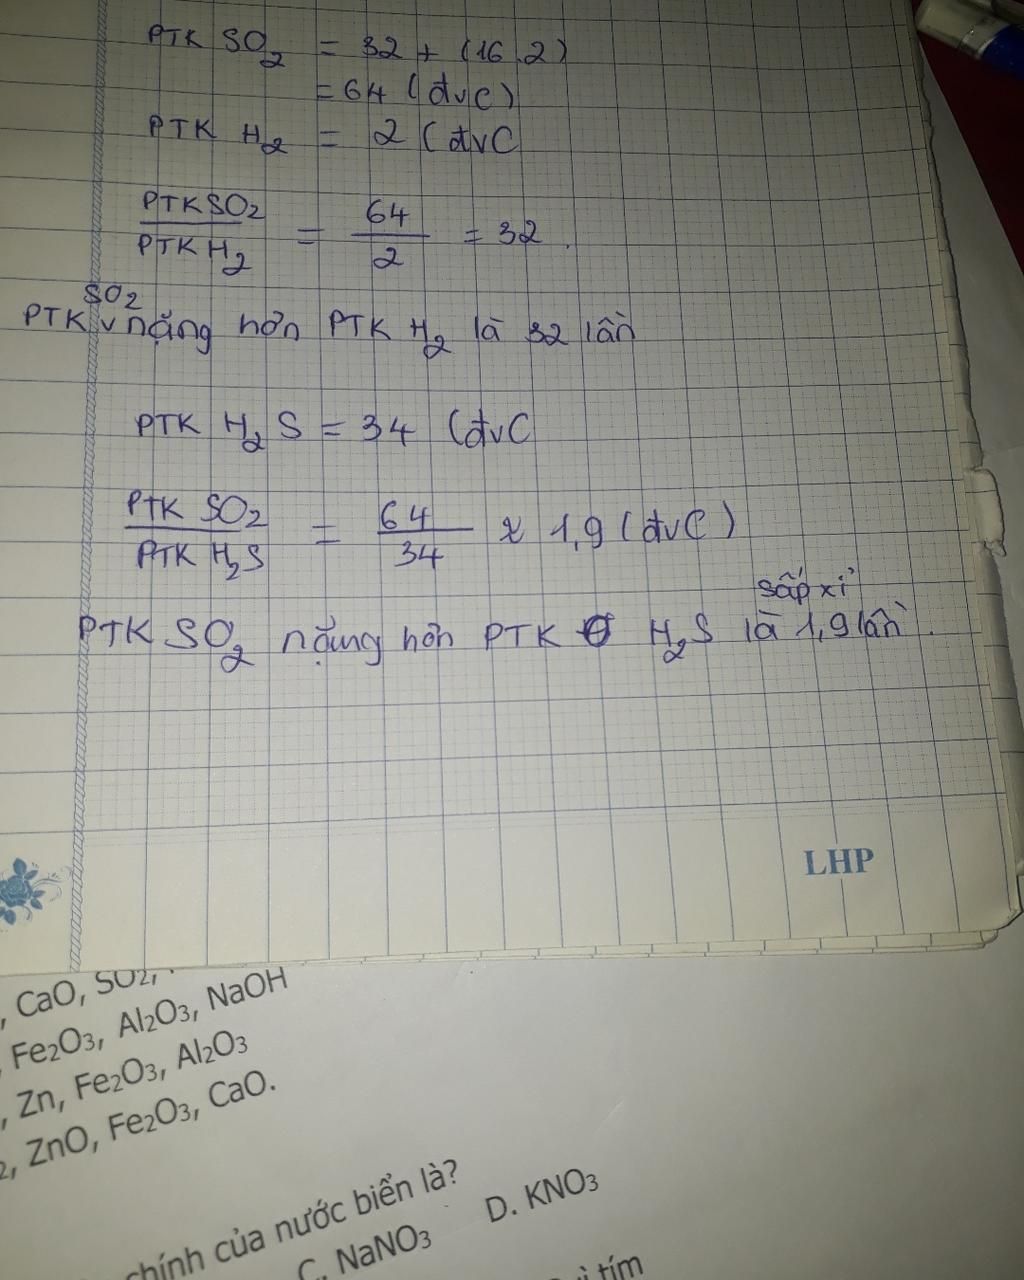 PTK SO₂ = 32 + (16.2)
= 64 (đvC)
PTK H₂ = 2 (đvC
PTK SO₂ / PTK H₂ = 64 / 2 = 32.
SO₂
PTK v nặng hơn PTK H₂ là 32 lần
PTK H₂S = 34 (đvC
PTK SO₂ / PTK H₂S = 64 / 34 ≈ 1,9 (đvC)
sấp xỉ
PTK SO₂ nặng hơn PTK H₂S là 1,9 lần.
LHP
, CaO, SO₂,
, Fe₂O₃, Al₂O₃, NaOH
, Zn, Fe₂O₃, Al₂O₃
₂, ZnO, Fe₂O₃, CaO.
chính của nước biển là?
C. NaNO₃ D. KNO₃
tím